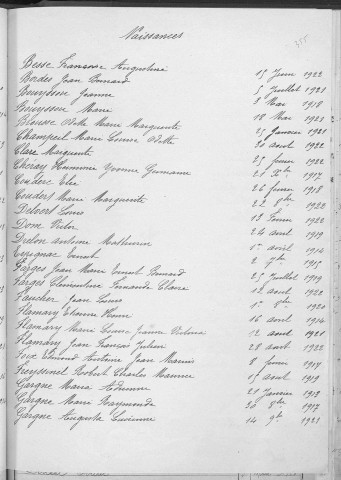 Naissances
355
Besse Françoise Augustine 15 Juin 1922
Bordes Jean Leonard 5 Juillet 1921
Bouysson Jeanne 8 Mai 1918
Bouysson Marie 18 Mai 1921
Brousse Odette Marie Marguerite 25 Janvier 1921
Champeil Marie Louise Odette 20 aout 1922
Clare Marguerite 25 fevrier 1922
Yvonne Germaine 21 Xbre 1917
Couderc Elie 26 fevrier 1918
Coudert Marie Marguerite 22 8bre 1922
Delvert Louis 12 Fevrier 1922
Dom Victor 24 avril 1919
Dulon Antoine Mathurin 1er avril 1914
Espignac Ernest 2 7bre 1915
Farges Jean Marie Ernest Leonard 25 Juillet 1919
Farges Clementine Fernande Claire 12 aout 1922
Faucher Jean Louis 1er 8bre 1920
Flamary Etienne Pierre 16 avril 1914
Flamary Marie Louise Jeanne Victoria 12 aout 1921
Flamary Jean François Julien 28 aout 1922
Foix Edmond Antoine Jean Marius 8 fevrier 1914
Freyssinel Robert Charles Maurice 15 aout 1919
Gargne Maria Adrienne 21 Janvier 1913
Gargne Marie Raymonde 30 8bre 1917
Gargne Augusta Lucienne 14 9bre 1921